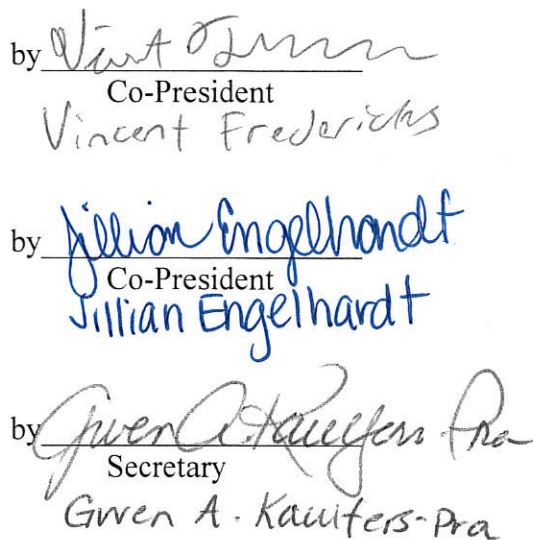 by Vint
Co-President
Vincent Fredericks
by Jillian Engelhardt
Co-President
Jillian Engelhardt
by Gwen A. Kauifers-Pra
Secretary
Gwen A. Kauifers-Pra